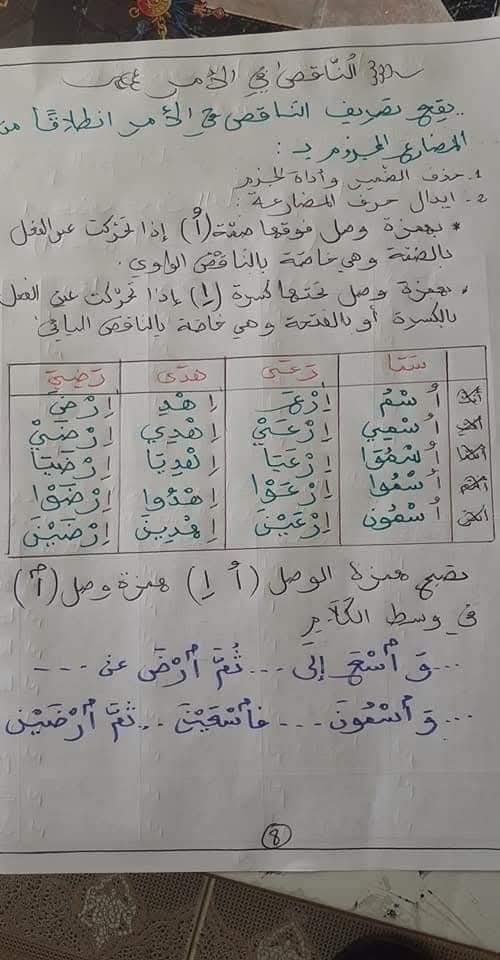 النّاقص في الأمر
يقع تصريف الناقص في الأمر انطلاقًا من
المضارع المجزوم بـ :
1. حذف الضمير وأداة الجزم
2. ابدال حرف المضارعة :
* بهمزة وصل فوقها ضمّة (اُ) إذا تحرّكت عين الفعل
بالضمّة وهي خاصّة بالناقص الواوي.
* بهمزة وصل تحتها كسرة (اِ) إذا تحرّكت عين الفعل
بالكسرة أو بالفتحة وهي خاصّة بالناقص اليائي
سَمَا رَعَى هَدَى رَضِيَ
أنتَ اُسْمُ اِرْعَ اِهْدِ اِرْضَ
أنتِ اُسْمِي اِرْعَيْ اِهْدِي اِرْضَيْ
أنتما اُسْمُوَا اِرْعَيَا اِهْدِيَا اِرْضَيَا
أنتم اُسْمُوا اِرْعَوْا اِهْدُوا اِرْضَوْا
أنتنّ اُسْمُونَ اِرْعَيْنَ اِهْدِينَ اِرْضَيْنَ
تصبح همزة الوصل (اُ اِ) همزة وصل (ٱ)
في وسط الكَلَامِ
... وَ ٱسْعَ إِلَى ... ثُمَّ ٱرْضَ عن ---
... وَ ٱسْمُونَ ... فَٱسْعَيْنَ ... ثُمَّ ٱرْضَيْنَ
8